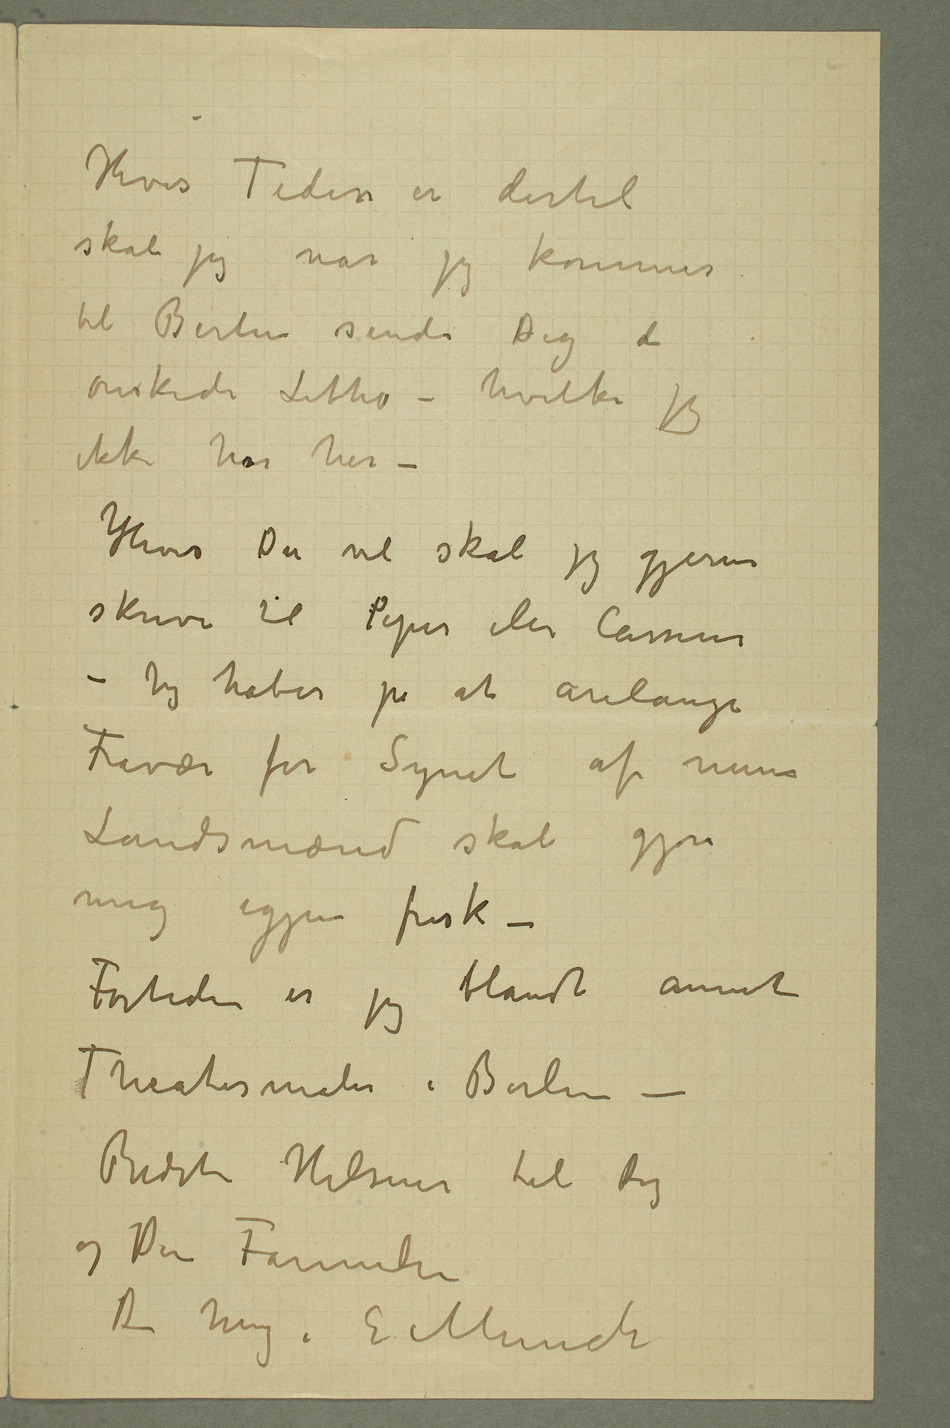 Hvis Tiden er dertil
skal jeg når jeg kommer
til Berlin sende Dig de
ønskede Litho – hvilke jeg
ikke har her –
Hvis Du vil skal jeg gjerne
skrive til Peper eller Cassirer
– Jeg håber på at årelange
Fravær for Synet af mine
Landsmænd skal gjøre
mig igjen frisk –
Fortiden er jeg blandt annet
Theatermaler i Berlin –
Bedste Hilsener til Dig
og Din Familie
Din heng. E Munch